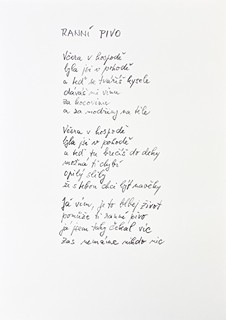 RANNÍ PIVO
Včera v hospodě
byla jsi v pohodě
a teď se tváříš kysele
dáváš mi vinu
za kocovinu
a za modřiny na těle
Včera v hospodě
byla jsi v pohodě
a teď tu brečíš do dlahy
možná ti chybí
opilý sliby
že s tebou chci být navěky
Já vím, je to blbej život
pomůže ti ranní pivo
já jsem taky čekal víc
zas nemáme nikdo nic